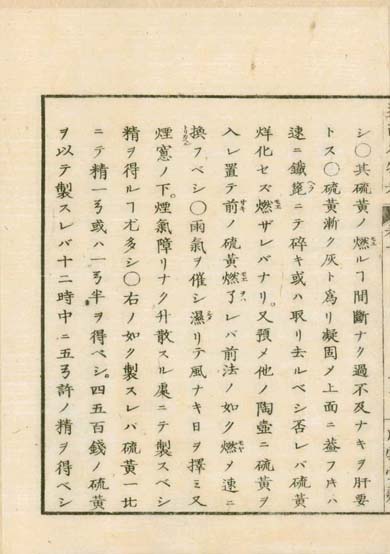 シ〇其硫黄ノ燃ルヿ間斷ナク過不及ナキヲ肝要
トス〇硫黄漸ク灰ト爲リ凝固メ上面ニ葢フ𪜈ハ
速ニ鐵箆ニテ碎キ或ハ取リ去ルベシ否レバ硫黄
烊化セズ燃ザレバナリ。又預メ他ノ陶壺ニ硫黄ヲ
入レ置テ前ノ硫黄燃了レバ前法ノ如ク燃メ速ニ
換フベシ〇雨氣ヲ催シ濕リテ風ナキ日ヲ擇ミ又
煙窓ノ下。煙氣障リナク升散スル處ニテ製スベシ
精ヲ得ルヿ尤多シ〇右ノ如ク製スレバ硫黄一比
ニテ精一弓或ハ一弓半ヲ得ベシ。四五百錢ノ硫黄
ヲ以テ製スレバ十二時中ニ五弓許ノ精ヲ得ベシ